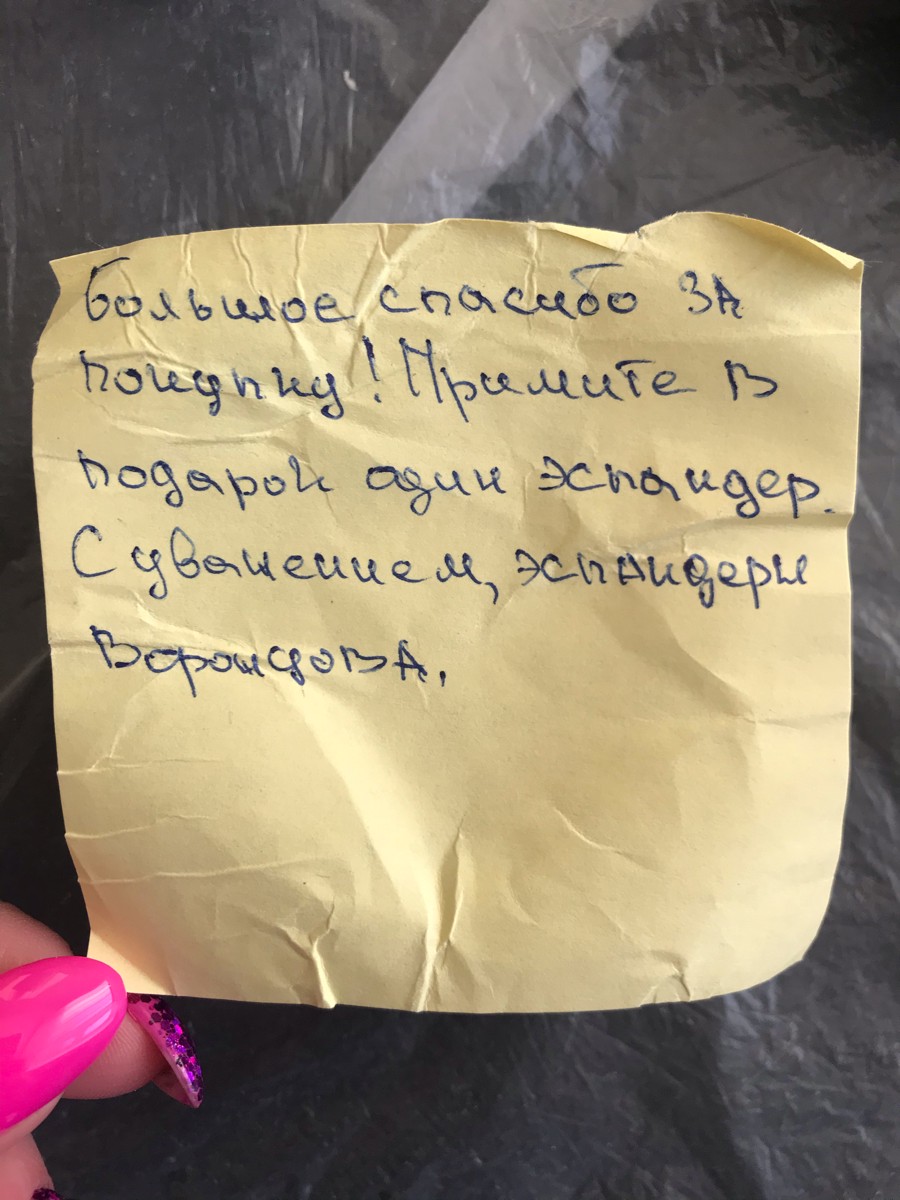 Большое спасибо за
покупку! Примите в
подарок один эспандер.
С уважением, эспандеры
Воронцова.